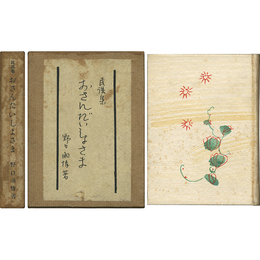 民謡集
おさんだいしよさま
野口雨情著
民謡集 おさんだいしよさま 野口雨情著